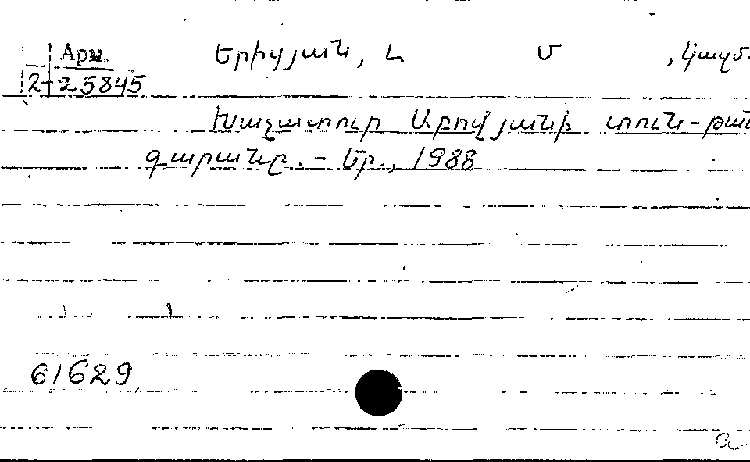 Арм. Երիցյան, Լ Մ , կազմ.
2-25845
Խաչատուր Աբովյանի տուն-թան
գարանը. - Եր., 1988
61629
a